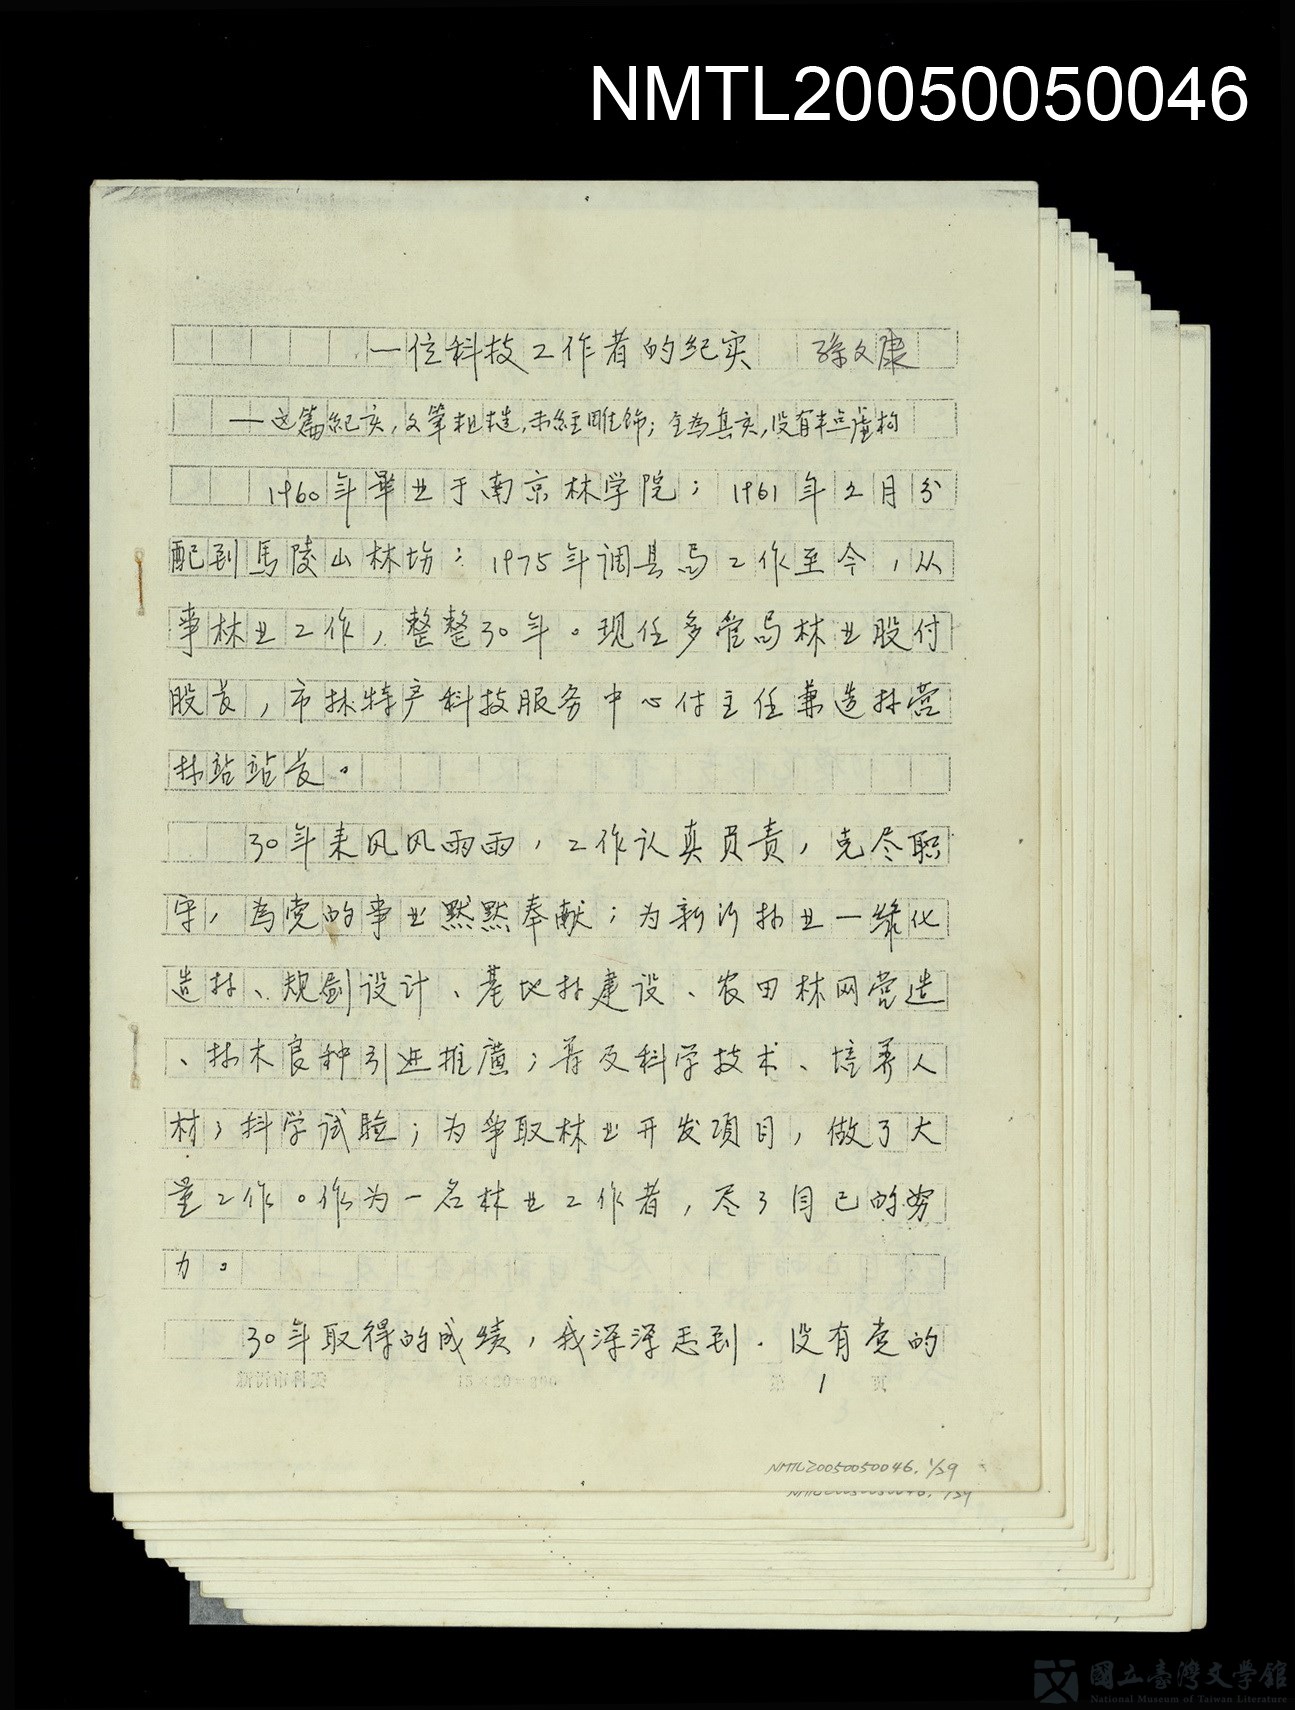 NMTL20050050046
一位科技工作者的纪实 孫文康
—这篇紀实，文筆粗造，未經雕饰；全为真实，没有半点虛构
1960年畢业于南京林学院；1961年2月分
配到馬陵山林场；1975年调县局工作至今，从
事林业工作，整整30年。现任多管局林业股付
股长，市林特产科技服务中心付主任兼造林营
林站站长。
30年来风风雨雨，工作认真負责，克尽职
守，為党的事业默默奉献；为新沂林业—绿化
造林、规划设计、基地林建设、农田林网营造
、林木良种引进推廣；普及科学技术、培养人
材；科学试验；为争取林业开发項目，做了大
量工作。作为一名林业工作者，尽了自己的努
力。
30年取得的成绩，我深深志到．没有党的
1
NMTL20050050046. 1/29
國立臺灣文學館
National Museum of Taiwan Literature